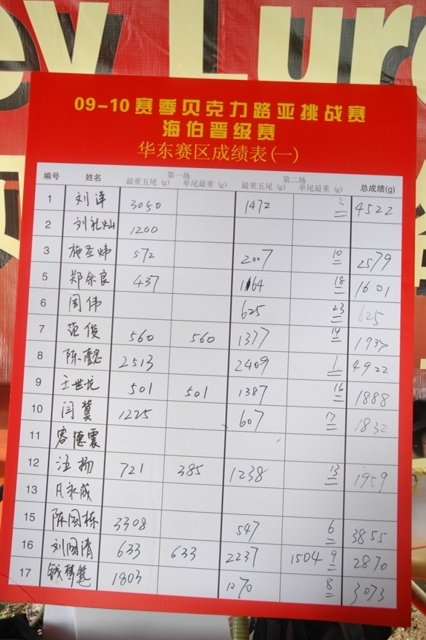 ey Lure
09-10赛季贝克力路亚挑战赛
海伯晋级赛
华东赛区成绩表(一)
编号 姓名 第一场 第二场 总成绩(g)
最重五尾 (g) 单尾最重 (g) 最重五尾 (g) 单尾最重 (g)
1 刘洋 3050 1472 2 4522
2 刘礼灿 1200
3 施圣炜 572 2007 10 2579
5 郑余良 437 1164 18 1601
6 周伟 625 23 625
7 范俊 560 560 1377 14 1937
8 陈 2513 2409 1 4922
9 王世 501 501 1387 16 1888
10 闫冀 1225 607 17 1832
11 容德震
12 汪扬 721 385 1238 13 1959
13 成
15 陈国栋 3308 547 6 3855
16 刘国清 633 633 2237 1504 9 2870
17 钱 1803 1270 8 3073